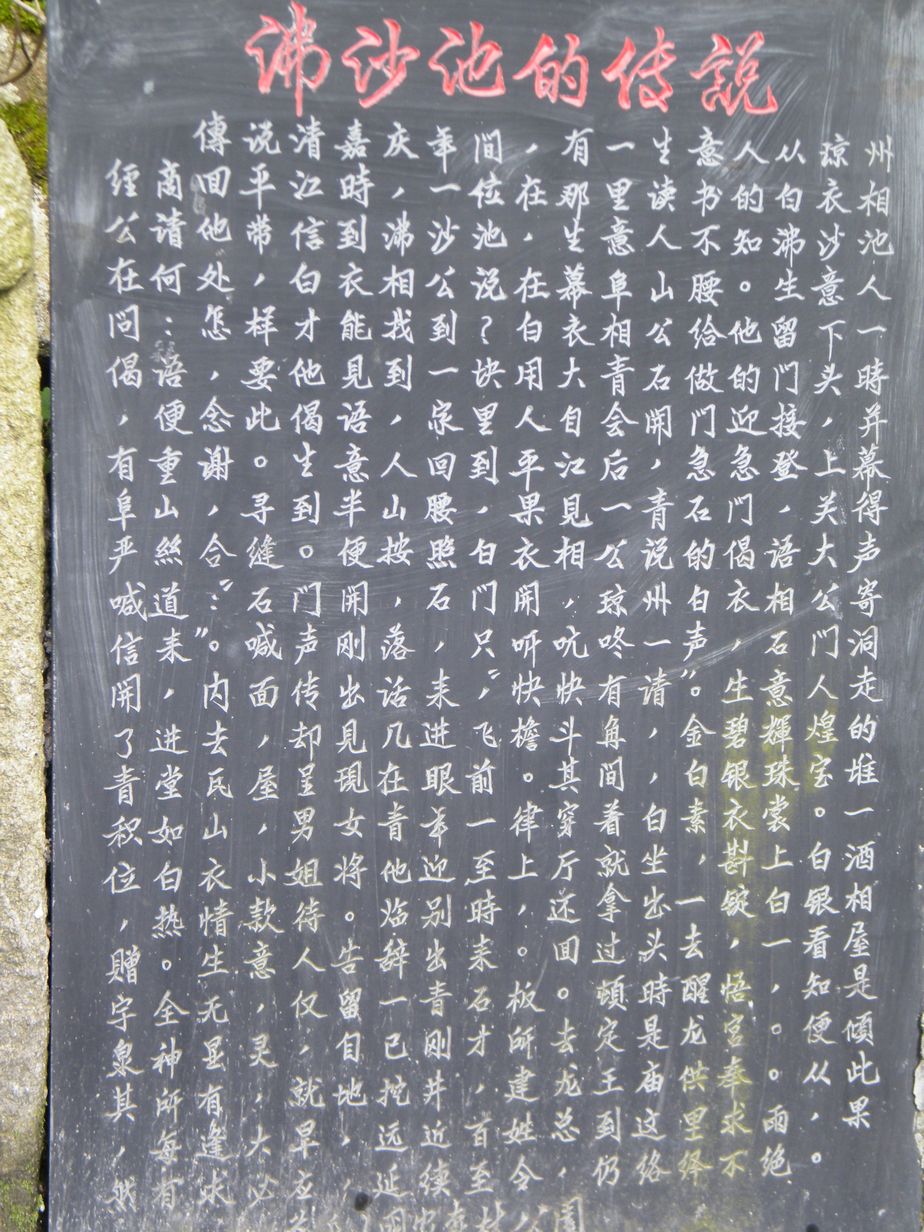 沸沙池的传說
傳说清嘉庆年间，有一生意人从琼州
经商回平江時，一位在那里读书的白衣相
公请他带信到沸沙池，生意人不知沸沙池
在何处，白衣相公说，在幕阜山腰。生意人
问：怎样才能找到？白衣相公给他留下一
偈语，要他见到一块用大青石做的门头時
，便念此偈语，家里人自会开门迎接，并
有重谢。生意人回到平江后，急急登上幕
阜山，寻到半山腰，果见一青石门，关得
严絲合缝。便按照白衣相公说的偈语大声
喊道："石门开，石门开，琼州白衣相公寄
信来"。喊声刚落，只"呀吭咚一声"，石门洞
开，内面传出话来"，快快有请"。生意人走
了进去，却見几进飞檐斗角，金碧輝煌的
青堂民屋，呈現在眼前。其间，白银珠宝堆
积如山，男女青年一律穿着白素衣裳。一
位白衣小姐将他迎至上厅就坐，斟上白酒
，热情款待。临别時，还拿出一锭白银相
赠。生意人告辞出来。回过头去，一看屋
字全无，仅留一青石板。頓時醒悟，知是
泉神显灵，自己刚才所去定是龙宫。便倾
其所有，就地挖井，建龙王庙供奉。从此
，每逢大旱，远近百姓总到这里求雨，果
然有求必应，延续至令，仍络绎不绝。